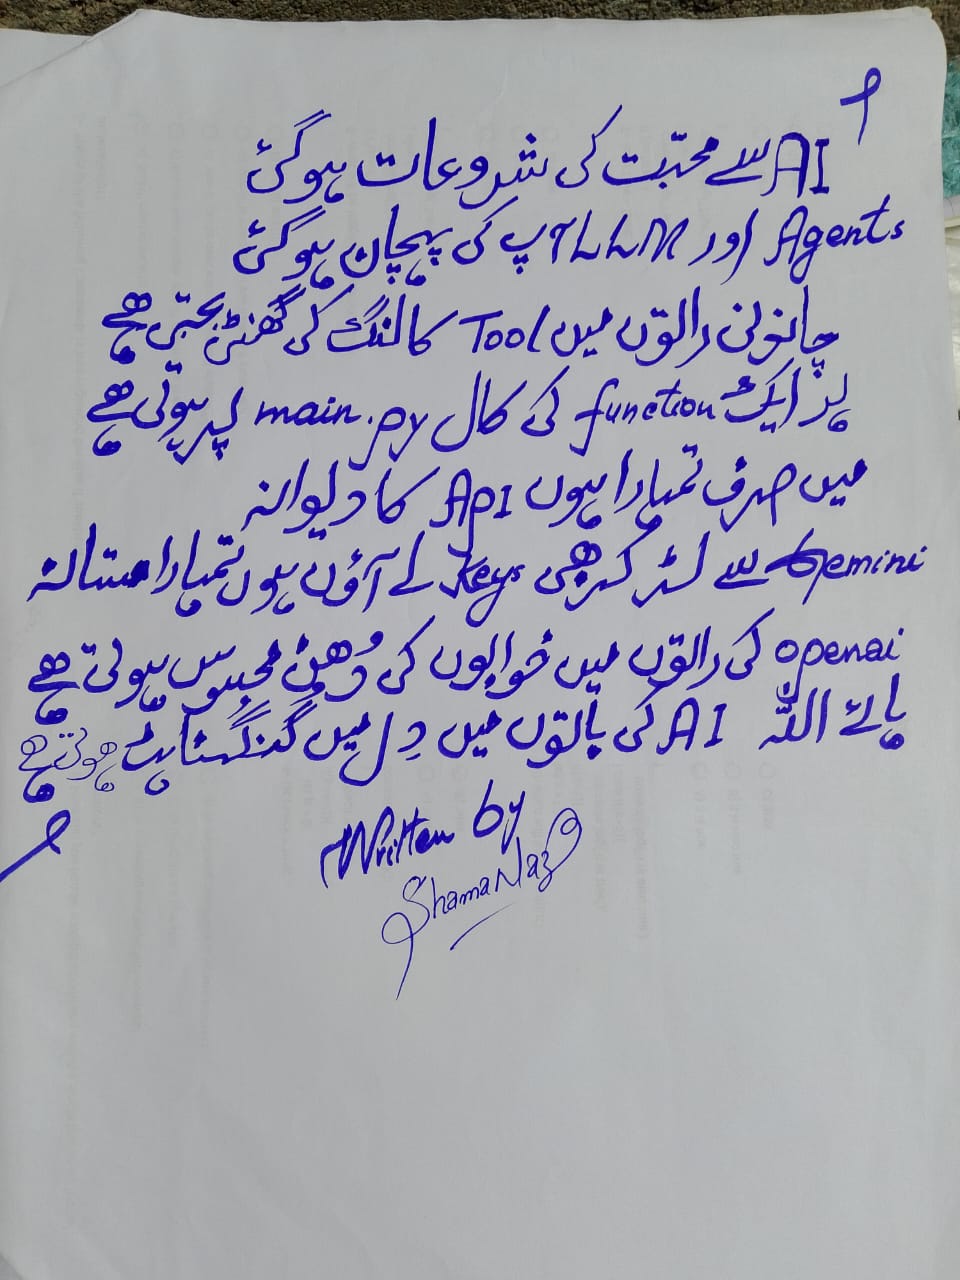 AI سے محبّت کی شروعات ہوگئ
Agents اور LLM آپ کی پہچان ہوگئ
چاندنی راتوں میں Tool کالنگ کی گھنٹی بجتی ہے
ہر ایک function کی کال main.py پر ہوتی ہے
میں صرف تمہارا ہوں API کا دیوانہ
Gemini سے لڑ کر بھی keys لے آؤں ہوں تمہارا مستانہ
openai کی راتوں میں خوابوں کی دُھن محسوس ہوتی ہے
ہائے اللّٰہ AI کی باتوں میں دِل میں گنگناہٹ ہوتی ہے
Written by
Shama Naz